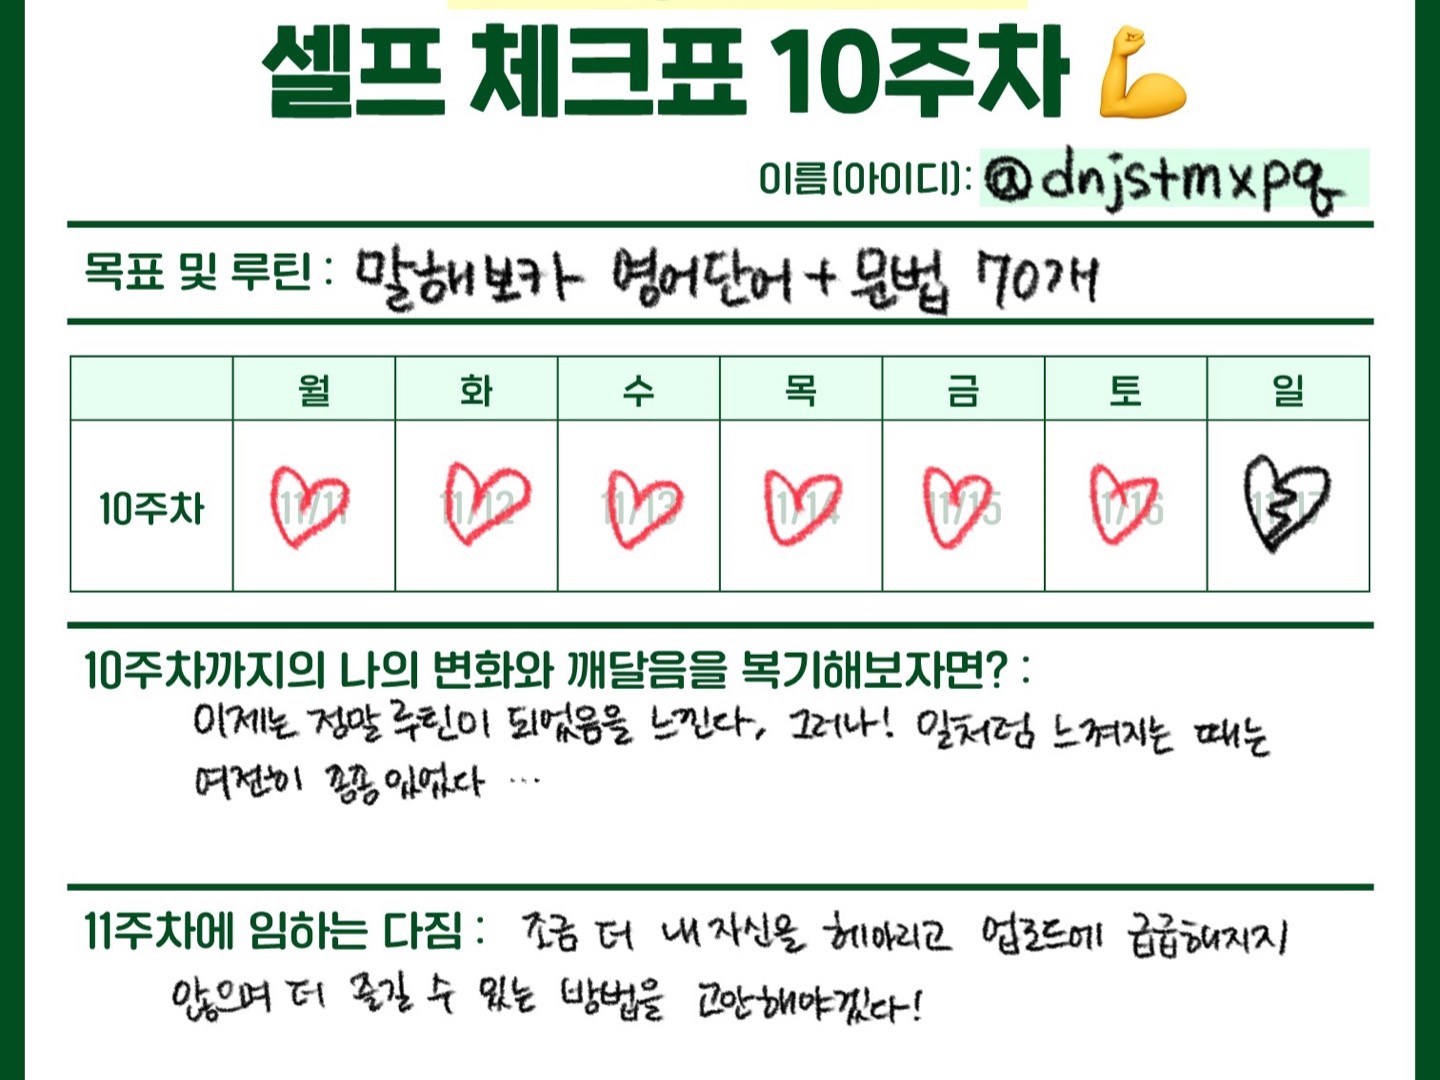 셀프 체크표 10주차
이름(아이디): @dnjstmxpq
목표 및 루틴 : 말해보카 영어단어 + 문법 70개
월 화 수 목 금 토 일
10주차 11/11 11/12 11/13 11/14 11/15 11/16 11/17
10주차까지의 나의 변화와 깨달음을 복기해보자면? :
이제는 정말 루틴이 되었음을 느낀다, 그러나! 일처럼 느껴지는 때는
여전히 종종 있었다 ...
11주차에 임하는 다짐 : 조금 더 내 자신을 헤아리고 업로드에 급급해지지
않으며 더 즐길 수 있는 방법을 고안해야겠다!